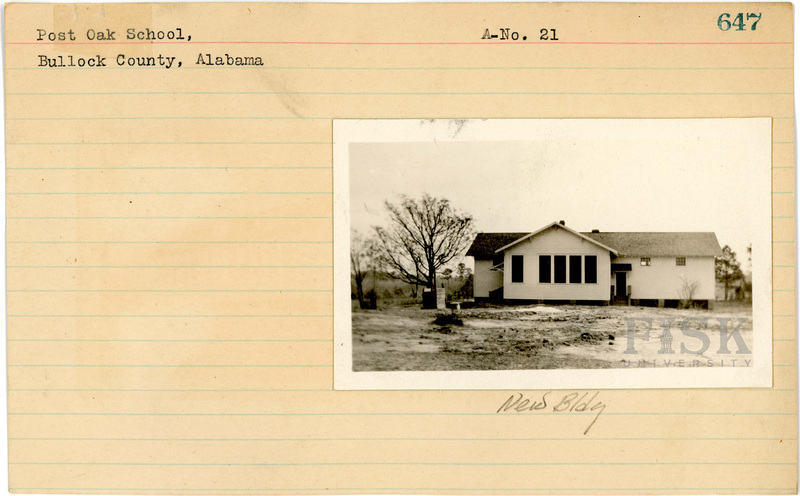 647
Post Oak School, A-No. 21
Bullock County, Alabama
FISK
UNIVERSITY
New Bldg